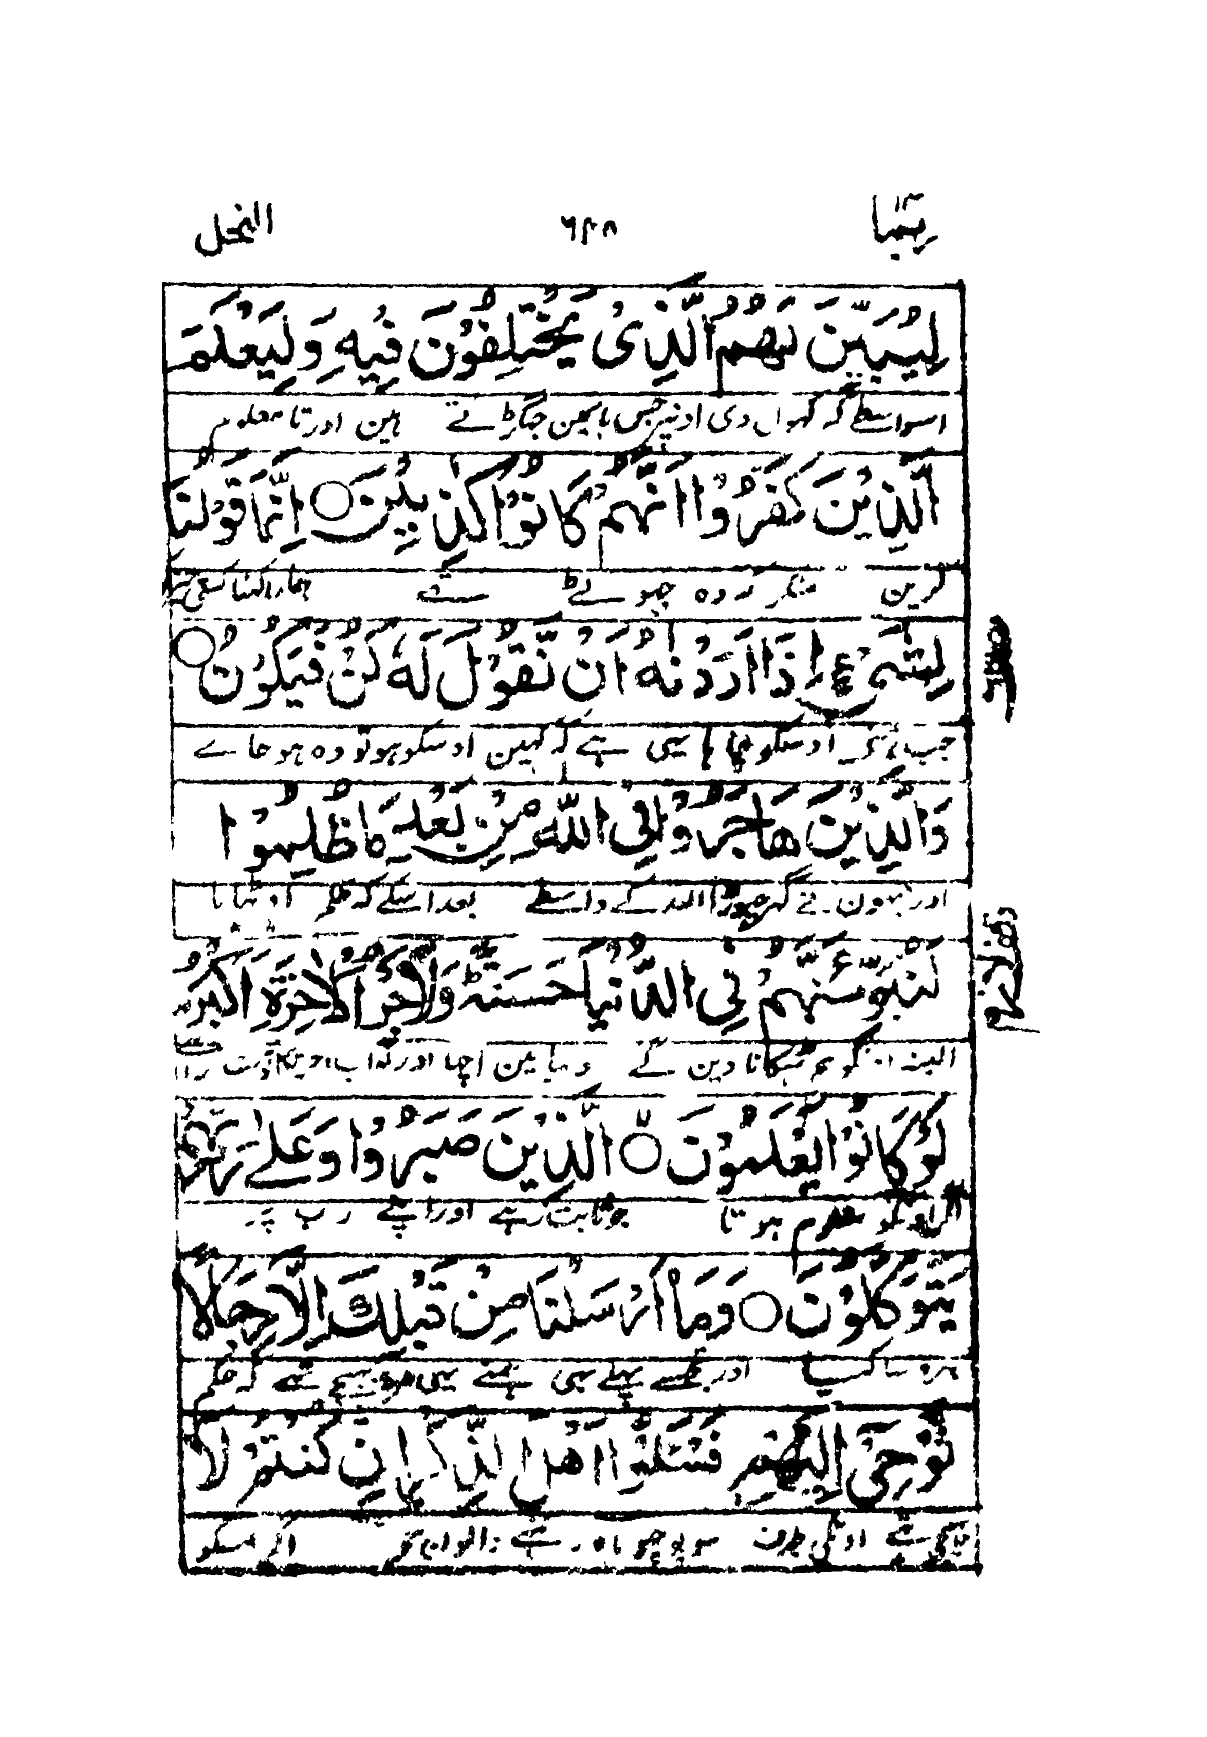 ربما ۶۲۸ النحل
لِيُبَيِّنَ لَهُمُ الَّذِىْ يَخْتَلِفُوْنَ فِيْهِ وَلِيَعْلَمَ
اسواسطے کہ کہول دی اونپر جس بات مین جہگڑتے ہین اور تا معلوم
الَّذِيْنَ كَفَرُوْا اَنَّهُمْ كَانُوْا كٰذِبِيْنَ ○ اِنَّمَا قَوْلُنَا
کرین منکر کہ وہ جہوٹے تہے ہمارا کہنا کسی
لِشَىْءٍ اِذَا اَرَدْنٰهُ اَنْ نَّقُوْلَ لَهٗ كُنْ فَيَكُوْنُ ○
جب اوسکو چاہا یہی ہے کہ کہین اوسکو ہو تو وہ ہو جاے
وَالَّذِيْنَ هَاجَرُوْا فِى اللّٰهِ مِنْۢ بَعْدِ مَا ظُلِمُوْا
اور جنہون نے گہر چہوڑا اللہ کے واسطے بعد اسکے کہ ظلم اوٹہایا
لَنُبَوِّئَنَّهُمْ فِى الدُّنْيَا حَسَنَةً وَلَاَجْرُ الْاٰخِرَةِ اَكْبَرُ
البتہ انکو ہم ٹہکانا دین گے دنیا مین اچہا اور ثواب آخرت
لَوْ كَانُوْا يَعْلَمُوْنَ ○ الَّذِيْنَ صَبَرُوْا وَعَلٰى رَبِّهِمْ
اگر اونکو معلوم ہوتا جو ثابت رہے اور اپنے رب پر
يَتَوَكَّلُوْنَ ○ وَمَا اَرْسَلْنَا مِنْ قَبْلِكَ اِلَّا رِجَالًا
بہروسا کیا اور تجہسے پہلے بہی ہمنے یہی مرد بہیجے تہے کہ حکم
نُّوْحِىْ اِلَيْهِمْ فَسْـَٔلُوْا اَهْلَ الذِّكْرِ اِنْ كُنْتُمْ لَا
بہیجتے تہے اونکی طرف سو پوچہو اگر تمکو